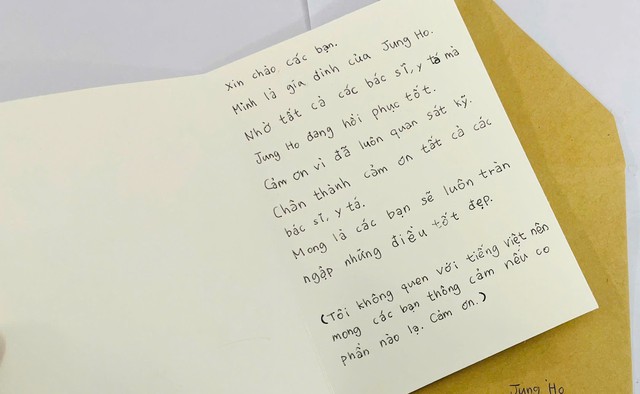 Xin chào các bạn.
Mình là gia dình của Jung Ho.
Nhờ tất cả các bác sĩ, y tá mà
Jung Ho đang hồi phục tốt.
Cảm ơn vì đã luôn quan sát kỹ.
Chân thành cảm ơn tất cả các
bác sĩ, y tá.
Mong là các bạn sẽ luôn tràn
ngập những điều tốt đẹp.
(Tôi không quen với tiếng việt nên
mong các bạn thông cảm nếu co
phần nào lạ. Cảm ơn.)
Jung Ho